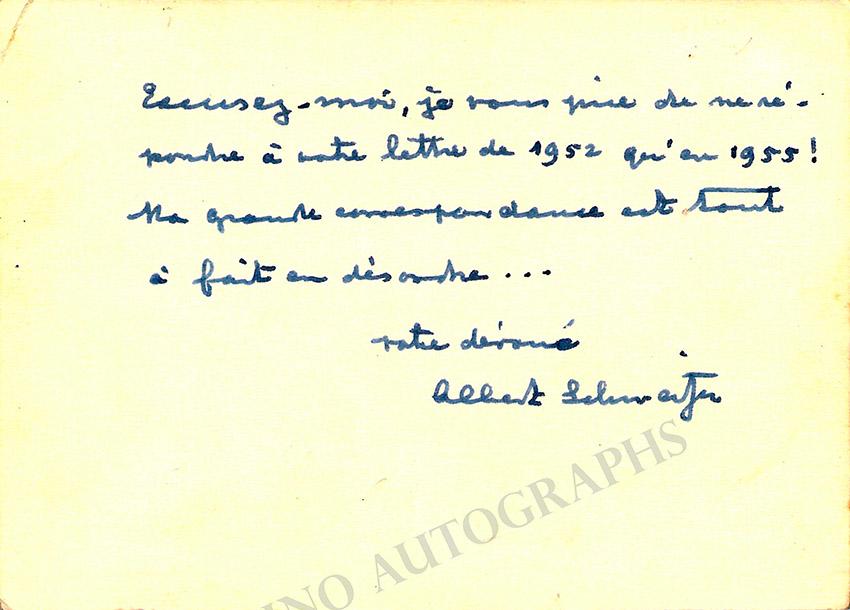 Excusez-moi, je vous prie de ne ré-
pondre à votre lettre de 1952 qu'en 1955!
Ma grande correspondance est tout
à fait en désordre...
votre dévoué
Albert Schweitzer
INO AUTOGRAPHS